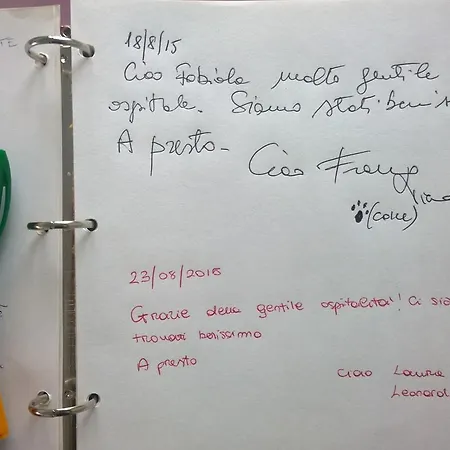 18/8/15
Ciao Fabiola molto gentile
ospitale. Siamo stati benis
A presto-
Ciao
(cane)
23/08/2015
Grazie della gentile ospitalita'! Ci sia
trovati benissimo
A presto
Ciao Laura
Leonard